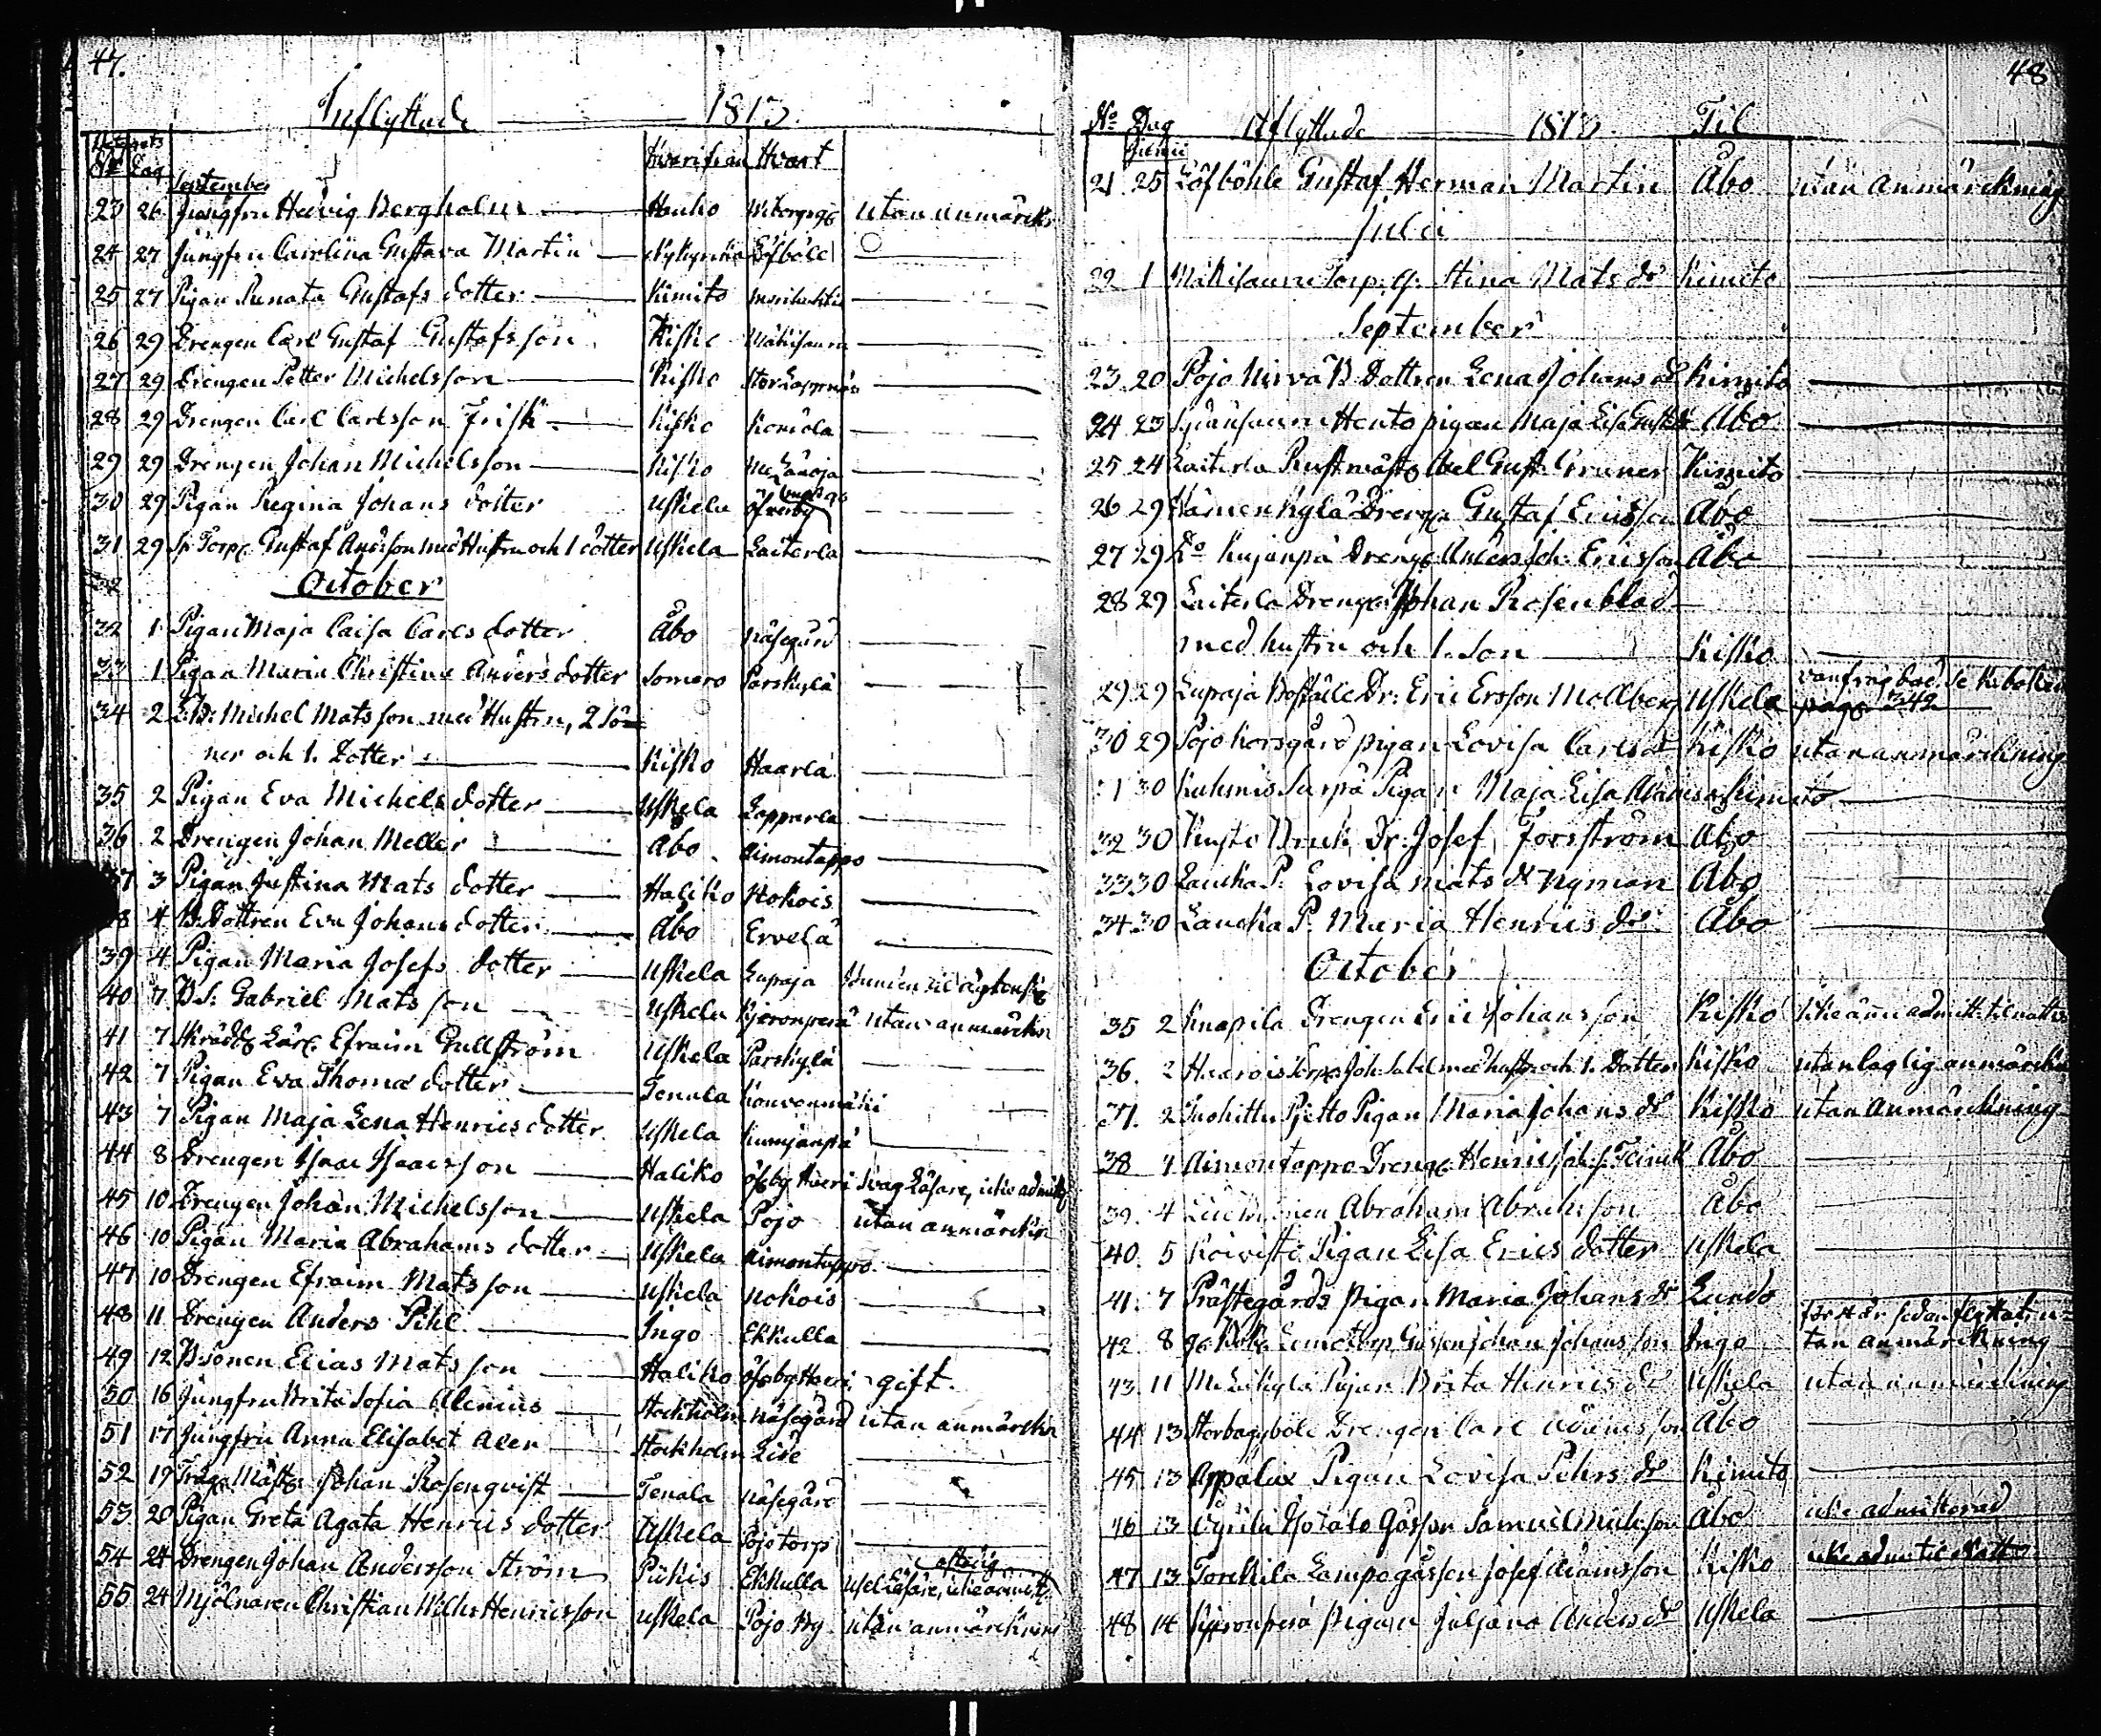 47.
Inflyttade 1813.
Attests
No Dag Hvarifrån Hvart
September
23 26 Jungfru Hedvig Bergholm Houko Wiborgsgd utan anmärckn
24 27 Jungfru Carolina Gustava Martin Nykyrcka Löfböle
25 27 Pigan Renata Gustafs dotter Kimito
26 29 Drengen Carl Gustaf Gustafsson Kisko Mäkisauru
27 29 Drengen Petter Michelsson Kisko StorLappnäs
28 29 Drengen Carl Carlsson Frisk Kisko Koriola
29 29 Drengen Johan Michelsson Kisko
30 29 Pigan Regina Johans dotter Uskela Öfverby
31 29 Sp. Torp. Gustaf Andsson med Hustru och 1 dotter Uskela Laiterla
32
October
32 1 Pigan Maja Caisa Carls dotter Åbo Näsegård
33 1 Pigan Maria Christina Anders dotter Somero Parskylä
34 2 Michel Matsson med Hustru, 2 Sö=
ner och 1. Dotter Kisko Haarla
35 2 Pigan Eva Michels dotter Uskela Lapparla
36 2 Drengen Johan Meller Åbo Aimontappo
37 3 Pigan Justina Mats dotter Haliko Nokois
38 4 B. Dottren Eva Johans dotter Åbo Ervelä
39 4 Pigan Maria Josefs dotter Uskela Lupaja
40 7 B. S. Gabriel Mats son Uskela Kjeronperä utan anmärckn
41 7 Skrädd. Lärl. Efraim Gullström Uskela Parskylä
42 7 Pigan Eva Thomæ dotter Tenala Kouvonmäki
43 7 Pigan Maja Lena Henrics dotter Uskela Kumjanpä
44 8 Drengen Isaac Isaacsson Haliko Öfby Heeri Svag Läsare, icke admitt
45 10 Drengen Johan Michelsson Uskela Pojo utan anmärckn
46 10 Pigan Maria Abrahams dotter Uskela Aimontappo
47 10 Drengen Efraim Matsson Uskela Nokois
48 11 Drengen Anders Pihl Ingo Ekkulla
49 12 B. Sonen Elias Mats son Haliko Öfby Heeri gift.
50 16 Jungfru Brita Sofia Alenius Stockholm Näsegård utan anmärckn
51 17 Jungfru Anna Elisabet Alen Stockholm Lise
52 19 Trägo Mäst. Johan Rosenqvist Tenala Näsegård
53 20 Pigan Greta Agata Henrics dotter Uskela Pojo torp
54 24 Drengen Johan Andersson Ström Pickis Ekkulla Usel Läsare, icke admitt
55 24 Mjölnaren Christian Wilh. Henricsson Uskela Pojo By utan anmärckning
48
No Dag Aflyttade 1813 Til
Junii
21 25 Löfböhle Gustaf Herman Martin Åbo utan anmärckning
Julii
22 1 Mäkisauru Torp. Stina Mats dr Kimito
September
23 20 Pojo Nirva B. Dottren Lena Johans dr Kimito
24 23 Hento pigan Maja Lisa Gust. dr Åbo
25 24 Laiterla Rustmäst. Axel Gust. Gruner Kimito
26 29 Hämenkylä Drengen Gustaf Ericsson Åbo
27 29 Do Kujanpä Dreng. Anders Joh. Ericsson Åbo
28 29 Laiterla Drengen Johan Rosenblad
med hustru och 1. Son Kisko
29 29 Lupaja Boställe Dr. Eric Ersson Mollberg Uskela vanfrägdad, se K. boken
pag. 342
30 29 Pojo Korsgård pigan Lovisa Carls dr Kisko utan anmärckning
31 30 Kukinis Surpä Pigan Maja Lisa Adams dr Kimito
32 30 Kosko Bruk Dr. Josef Forsström Åbo
33 30 Laucka P. Lovisa Mats dr Nyman Åbo
34 30 Laucka P. Maria Henrics dr Åbo
October
35 2 Knapila Drengen Eric Johansson Kisko icke ännu admitt. til natt.
36. 2 Haarois Torp. Joh. Sabel med hustr. och 1. Dotter Kisko utan laglig anmärckn
37. 2 Suokittu Pjetto Pigan Maria Johans dr Kisko utan anmärckning
38 4 Aimontappo Dreng. Henric Joh. s. Åbo
39. 4 Abraham Abrahsson Åbo
40. 5 Koivisto Pigan Lisa Erics dotter Uskela
41. 7 Prästegårds pigan Maria Johans dr Lundo
42 8 Gossen Johan Johansson Ingo för år sedan flyttat, u=
tan anmärckning
43. 11 Pigan Brita Henrics dr Uskela utan anmärckning
44 13 Storbagböle Drengen Carl Adamsson Åbo
45 13 Appalax Pigan Lovisa Pehrs dr Kimito
46 13 Isotalo Gossen Samuel Mich.son Åbo icke admitterad
47 13 Torckila Lampo gossen Josef Adamsson Kisko icke adm. til natt.
48 14 Kjeronperä Pigan Juljana Anders dr Uskela